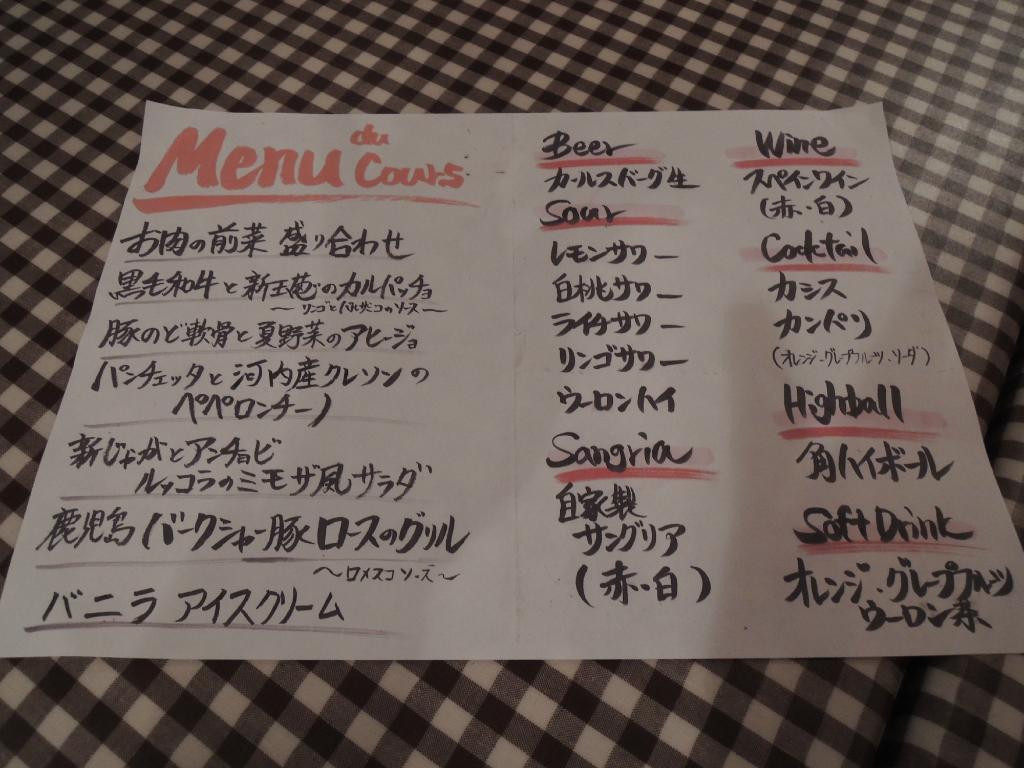 Menu du Cours
お肉の前菜 盛り合わせ
黒毛和牛と新玉葱のカルパッチョ
〜リンゴとバルサミコのソース〜
豚のど軟骨と夏野菜のアヒージョ
パンチェッタと河内産クレソンの
ペペロンチーノ
新じゃがとアンチョビ
ルッコラのミモザ風サラダ
鹿児島バークシャー豚ロースのグリル
〜ロメスコソース〜
バニラアイスクリーム
Beer
カールスバーグ生
Sour
レモンサワー
白桃サワー
ライチサワー
リンゴサワー
ウーロンハイ
Sangria
自家製
サングリア
(赤・白)
Wine
スペインワイン
(赤・白)
Cocktail
カシス
カンパリ
(オレンジ・グレープフルーツ・ソーダ)
Highball
角ハイボール
Soft Drink
オレンジ・グレープフルーツ
ウーロン茶